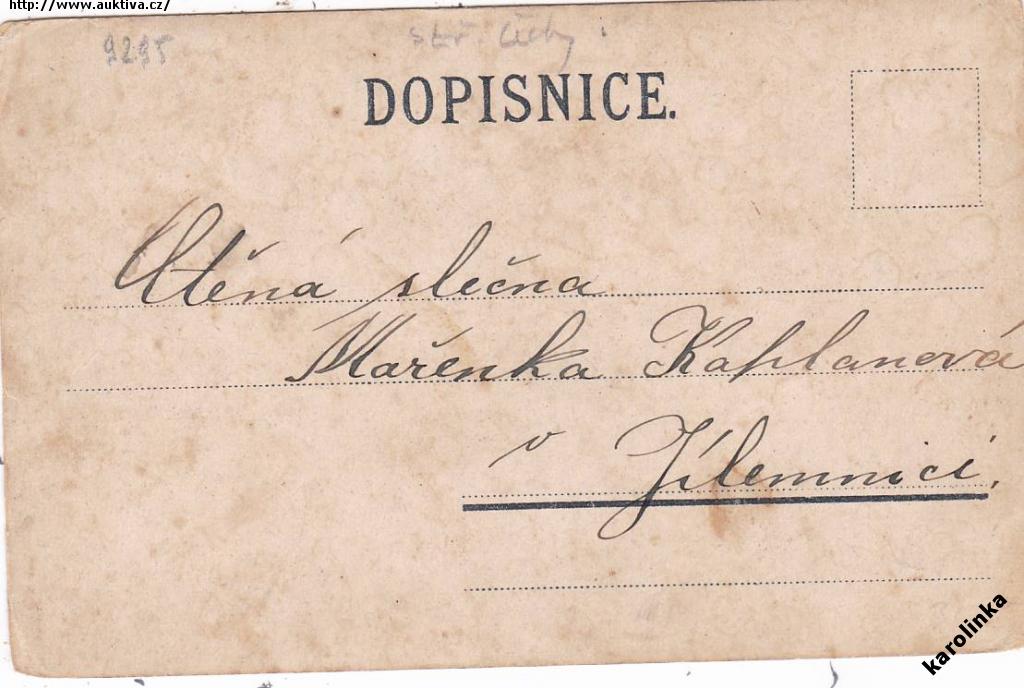 http://www.auktiva.cz/
9295
Stř. Čechy
DOPISNICE.
Ctěná slečna
Mařenka Kaplanová
v Jilemnici.
karolinka